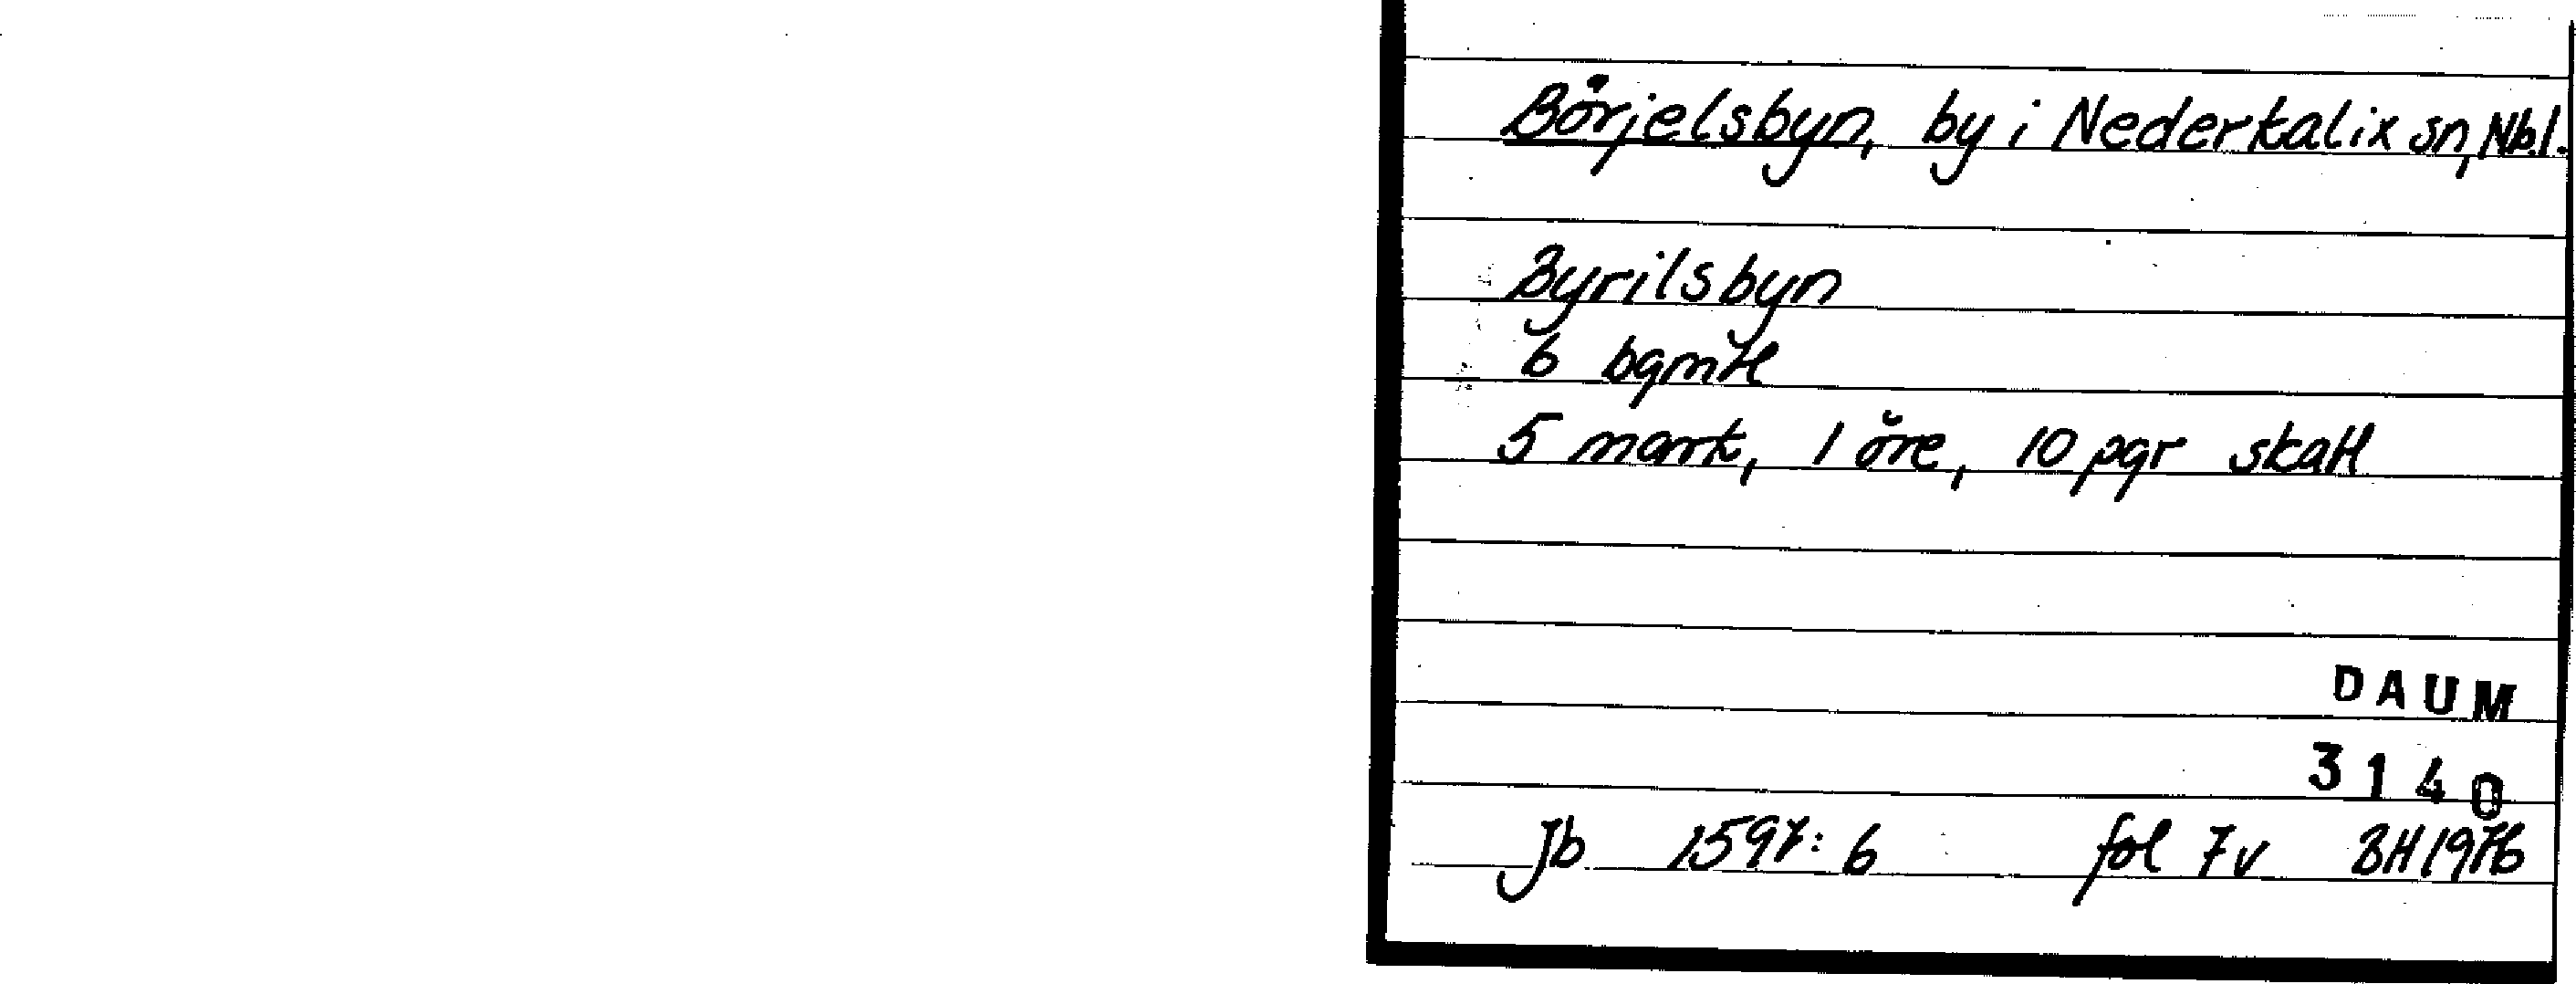 Börjelsbyn, by i Nederkalix sn, Nb.l.
Byrilsbyn
6 bgmtl
5 mark, 1 öre, 10 pgr skatt
DAUM
3140
Jb 1597:6 fol 7v BH 1976